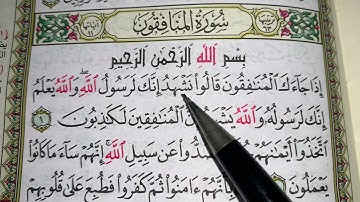 سُورَةُ المُنَافِقُونَ
بِسْمِ اللَّهِ الرَّحْمَٰنِ الرَّحِيمِ
إِذَا جَاءَكَ الْمُنَافِقُونَ قَالُوا نَشْهَدُ إِنَّكَ لَرَسُولُ اللَّهِ وَاللَّهُ يَعْلَمُ
إِنَّكَ لَرَسُولُهُ وَاللَّهُ يَشْهَدُ الْمُنَافِقِينَ لَكَاذِبُونَ ١
اتَّخَذُوا أَيْمَانَهُمْ عَنْ سَبِيلِ اللَّهِ إِنَّهُمْ سَاءَ مَا كَانُوا
يَعْمَلُونَ بِأَنَّهُمْ ءَامَنُوا ثُمَّ كَفَرُوا فَطُبِعَ عَلَىٰ قُلُوبِهِمْ